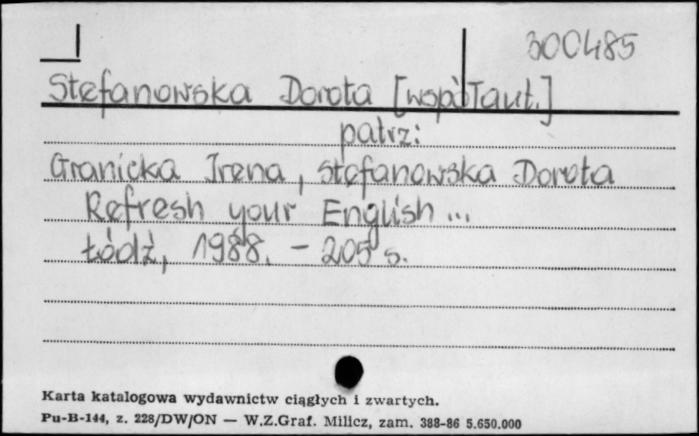 300485
Stefanowska Dorota [współaut.]
patrz:
Granicka Irena, Stefanowska Dorota
Refresh your English ...
Łódź, 1988. - 205 s.
Karta katalogowa wydawnictw ciągłych i zwartych.
Pu-B-144, z. 228/DW/ON — W.Z.Graf. Milicz, zam. 388-86 5.650.000